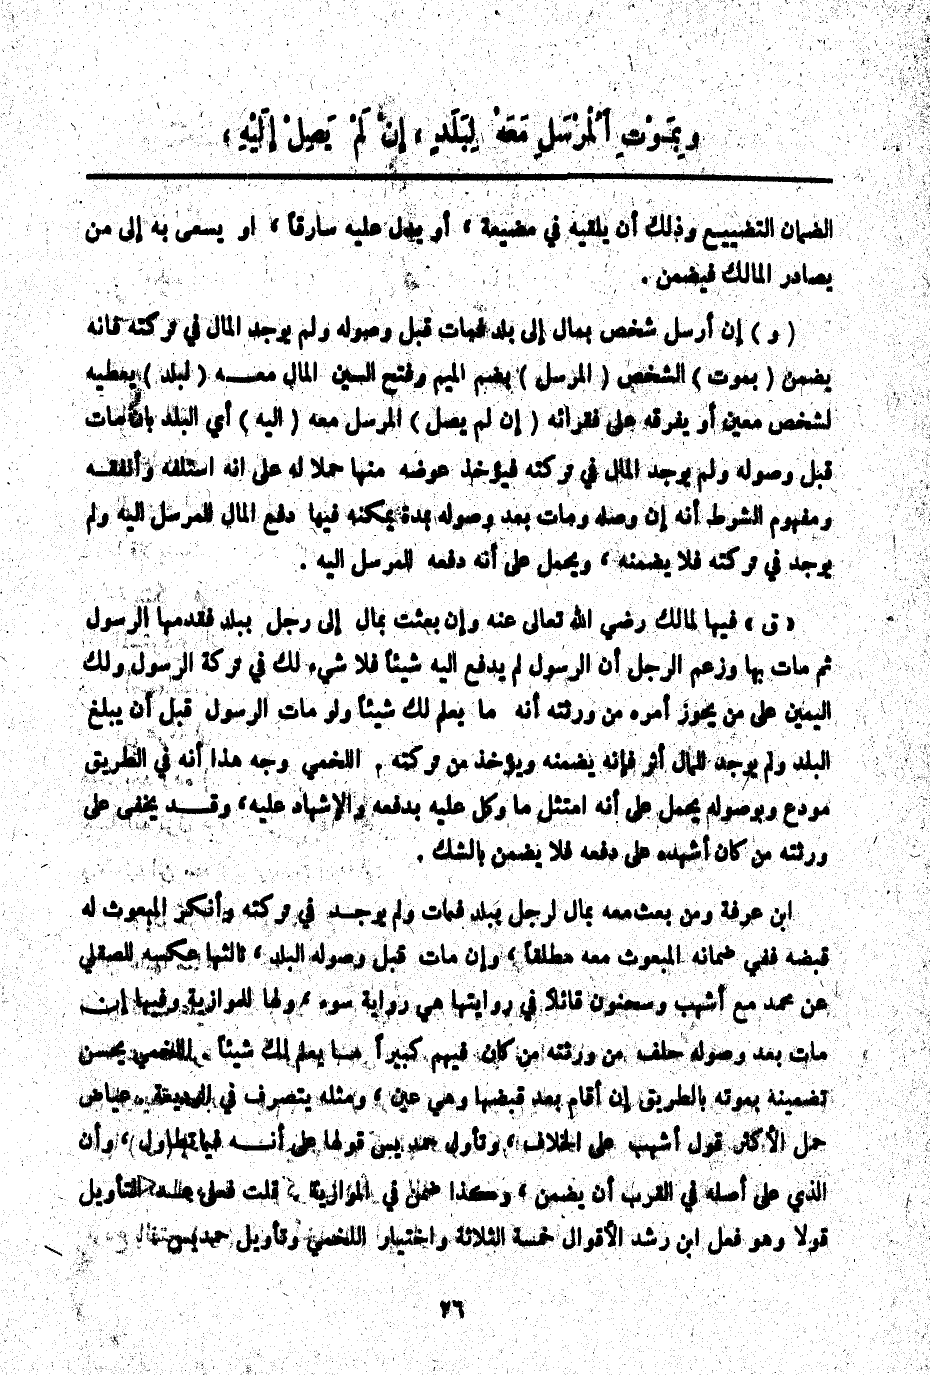 وَبِمَوْتِ ٱلْمُرْسَلِ مَعَهُ لِبَلَدٍ ، إِنْ لَمْ يَصِلْ إِلَيْهِ ،
الضمان التضييع وذلك أن يلقيه في مضيعة ، أو يدل عليه سارقاً ، او يسعى به إلى من
يصادر المالك فيضمن .
( و ) إن أرسل شخص بمال إلى بلد فمات قبل وصوله ولم يوجد المال في تركته فانه
يضمن ( بموت ) الشخص ( المرسل ) بضم الميم وفتح السين المال معه ( لبلد ) يعطيه
لشخص معين أو يفرقه على فقرائه ( إن لم يصل ) المرسل معه ( اليه ) أي البلد بان مات
قبل وصوله ولم يوجد المال في تركته فيؤخذ عوضه منها حملا له على انه استلفه وأنفقه
ومفهوم الشرط أنه إن وصله ومات بعد وصوله بمدة يمكنه فيها دفع المال للمرسل اليه ولم
يوجد في تركته فلا يضمنه ، ويحمل على أنه دفعه للمرسل اليه .
« ق » فيها لمالك رضي الله تعالى عنه وإن بعثت بمال إلى رجل ببلد فقدمها الرسول
ثم مات بها وزعم الرجل أن الرسول لم يدفع اليه شيئاً فلا شيء لك في تركة الرسول ولك
اليمين على من يجوز أمره من ورثته أنه ما يعلم لك شيئاً ولو مات الرسول قبل أن يبلغ
البلد ولم يوجد للمال أثر فإنه يضمنه ويؤخذ من تركته . اللخمي وجه هذا أنه في الطريق
مودع وبوصوله يحمل على أنه امتثل ما وكل عليه بدفعه والإشهاد عليه، وقد يخفى على
ورثته من كان أشهده على دفعه فلا يضمن بالشك .
ابن عرفة ومن بعث معه بمال لرجل ببلد فمات ولم يوجد في تركته وأنكر المبعوث له
قبضه ففي ضمانه المبعوث معه مطلقاً ، وإن مات قبل وصوله البلد ، ثالثها عكسه للصقلي
عن محمد مع أشهب وسحنون قائلاً في روايتها هي رواية سوء ، ولها للموازية وفيها إن
مات بعد وصوله حلف من ورثته من كان فيهم كبيراً ما يعلم لك شيئاً . اللخمي يحسن
تضمينه بموته بالطريق إن أقام بعد قبضها وهي عين ، ومثله يتصرف في الوديعة . عياض
حمل الأكثر قول أشهب على الخلاف ، وتأول حمديس قولها على أنه فيما تطاول ، وأن
الذي على أصله في القرب أن يضمن ، وهكذا ضمن في الموازية . قلت فعلى عد التأويل
قولا وهو فعل ابن رشد الأقوال خمسة الثلاثة واختيار اللخمي وتأويل حمديس
٢٦